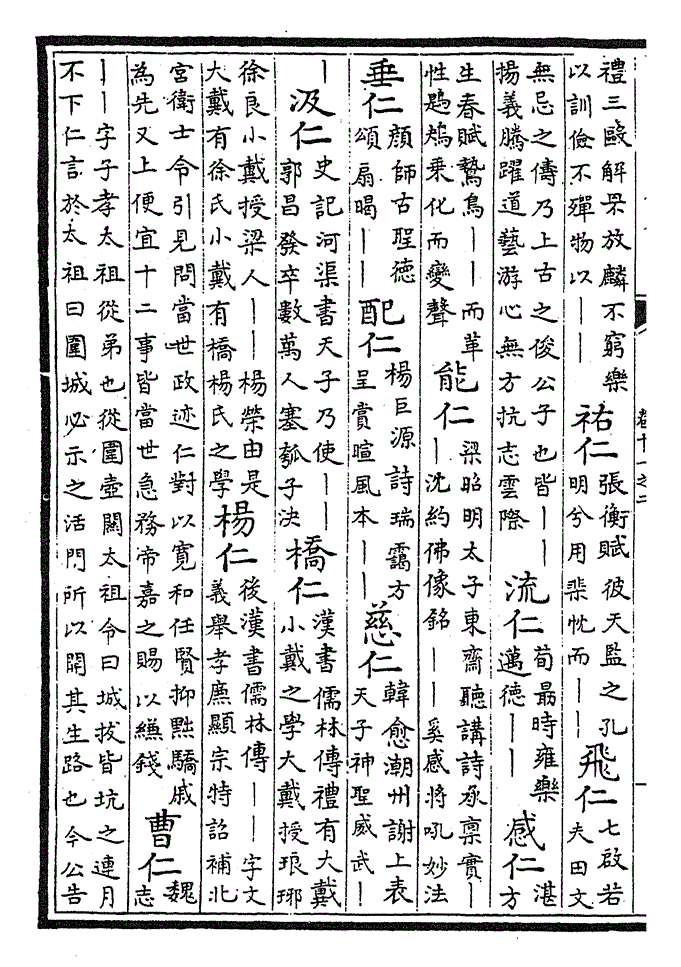 禮三敺解罘放麟不窮樂
以訓儉不殫物以｜｜
祐仁
張衡賦彼天監之孔
明兮用棐忱而｜｜
飛仁
七啟若
夫田文
無忌之儔乃上古之俊公子也皆｜｜
揚義騰躍道藝游心無方抗志雲際
流仁
荀勗時雍樂
邁德｜｜
感仁
湛
方
生春賦鷙鳥｜｜而革
性鶗鴂乗化而變聲
能仁
梁昭明太子東齋聽講詩承稟實｜
｜沈約佛像銘｜｜奚感將吼妙法
垂仁
顔師古聖德
頌扇暍｜｜
配仁
楊巨源詩瑞靄方
呈賞暄風本｜｜
慈仁
韓愈潮州謝上表
天子神聖威武｜
｜
汲仁
史記河渠書天子乃使｜｜
郭昌發卒數萬人塞瓠子決
橋仁
漢書儒林傳禮有大戴
小戴之學大戴授琅琊
徐良小戴授梁人｜｜楊榮由是
大戴有徐氏小戴有橋楊氏之學
楊仁
後漢書儒林傳｜｜字文
義舉孝廉顯宗特詔補北
宮衛士令引見問當世政迹仁對以寛和任賢抑黜驕戚
為先又上便宜十二事皆當世急務帝嘉之賜以縑錢
曹仁
魏
志
｜｜字子孝太祖從弟也從圍壺關太祖令曰城拔皆坑之連月
不下仁言於太祖曰圍城必示之活門所以開其生路也今公告
卷十一之二